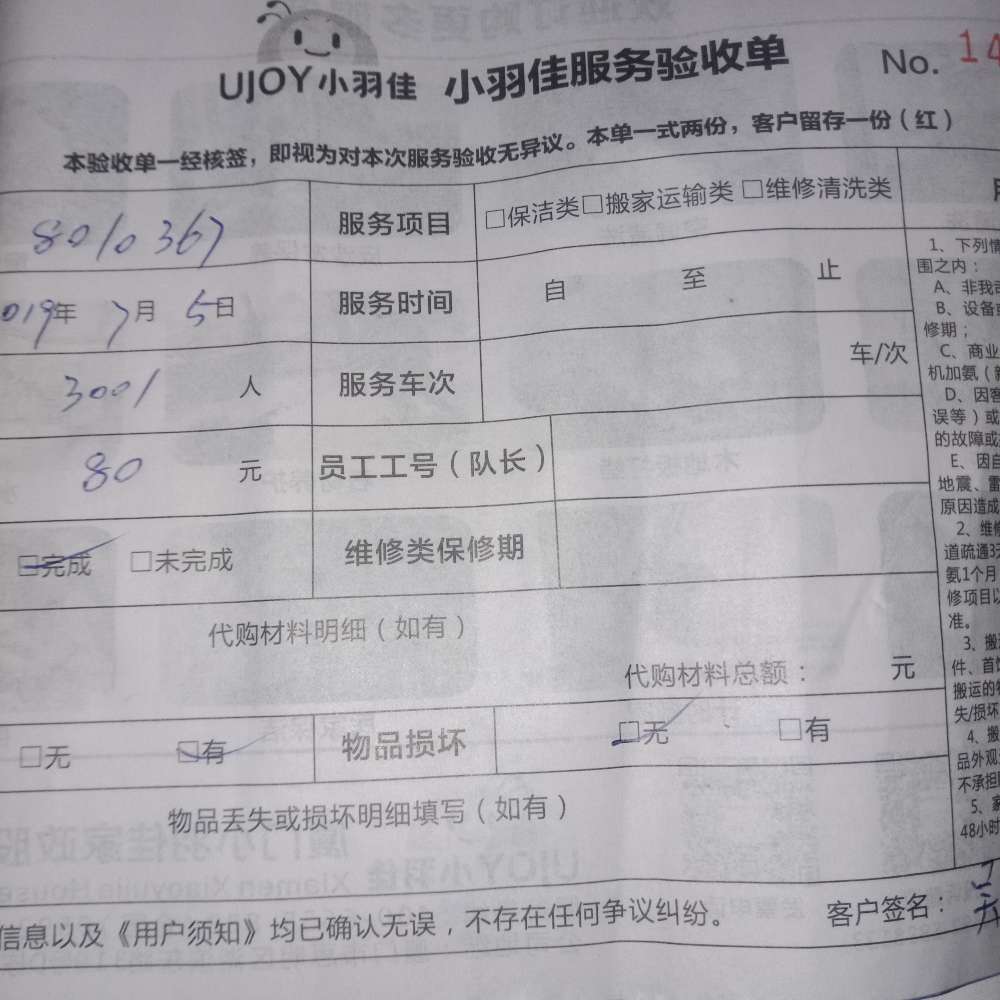 UJOY小羽佳 小羽佳服务验收单 No. 14
本验收单一经核签，即视为对本次服务验收无异议。本单一式两份，客户留存一份（红）
8010367 服务项目 □保洁类□搬家运输类 □维修清洗类
019年 7月 5日 服务时间 自 至 止
3001 人 服务车次 车/次
80 元 员工工号（队长）
□完成 □未完成 维修类保修期
代购材料明细（如有）
代购材料总额： 元
□无 □有 物品损坏 □无 □有
物品丢失或损坏明细填写（如有）
信息以及《用户须知》均已确认无误，不存在任何争议纠纷。 客户签名：
1、下列情
围之内：
A、非我司
B、设备
修期；
C、商业
机加氨（
D、因客
误等）或
的故障或
E、因自
地震、雷
原因造成
2、维修
道疏通3天
氨1个月
修项目以
准。
3、搬
件、首饰
搬运的
失/损坏
4、搬
品外观
不承担
5、家
48小时